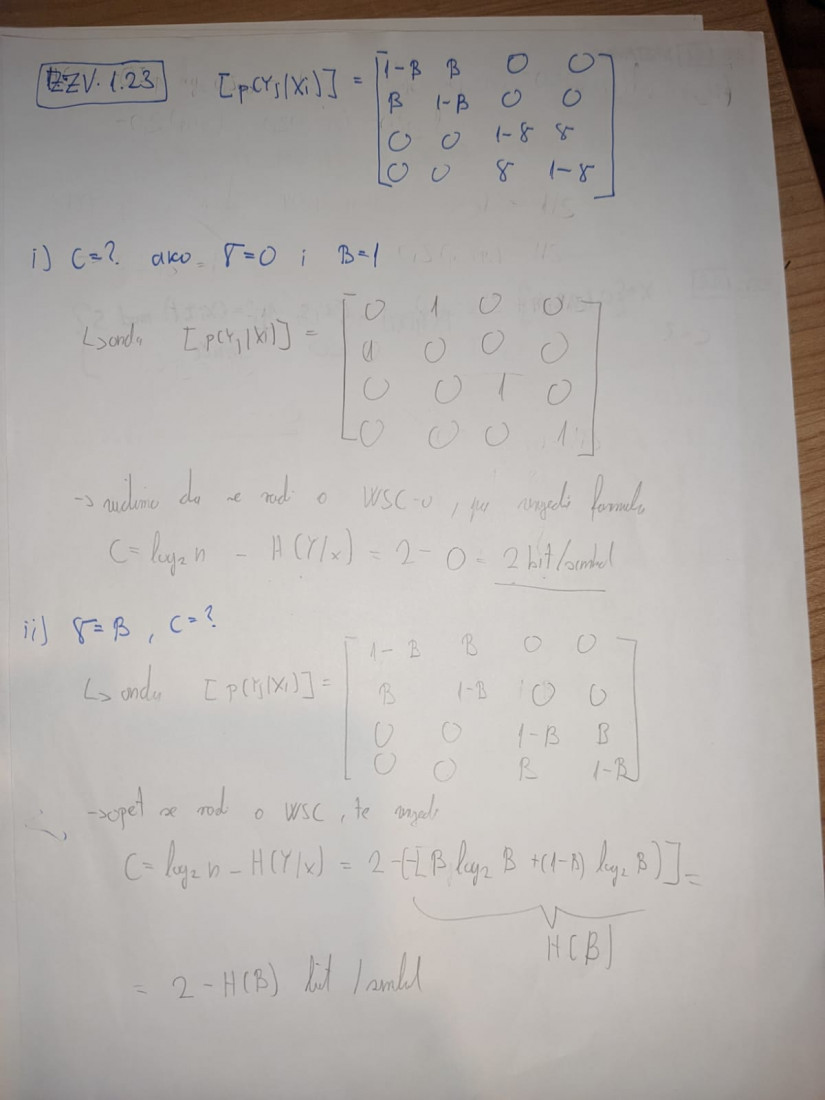 ZZV. 1.23 [p(Yj|Xi)] = [1-β β 0 0
β 1-β 0 0
0 0 1-γ γ
0 0 γ 1-γ]
i) C=? ako γ=0 i β=1
↳ onda [p(Yj|Xi)] = [0 1 0 0
1 0 0 0
0 0 1 0
0 0 0 1]
→ vidimo da se radi o WSC-u, pa vrijedi formula
C = log₂ n - H(Y/x) = 2 - 0 = 2 bit/simbol
ii) γ=β, C=?
↳ onda [p(Yj|Xi)] = [1-β β 0 0
β 1-β 0 0
0 0 1-β β
0 0 β 1-β]
→ opet se radi o WSC, te vrijedi
C = log₂ n - H(Y/x) = 2 -(-[β log₂ β + (1-β) log₂ β)] =
H(β)
= 2 - H(β) bit /simbol